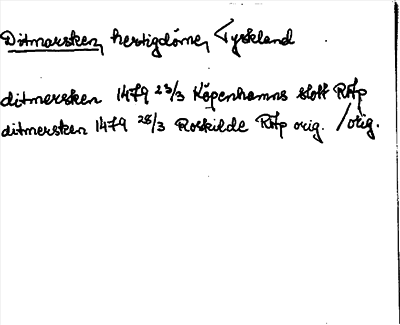 Ditmarsken, hertigdöme, Tyskland
ditmersken 1479 23/3 Köpenhamns slott RAp
ditmersken 1479 28/3 Roskilde RAp orig. /orig.